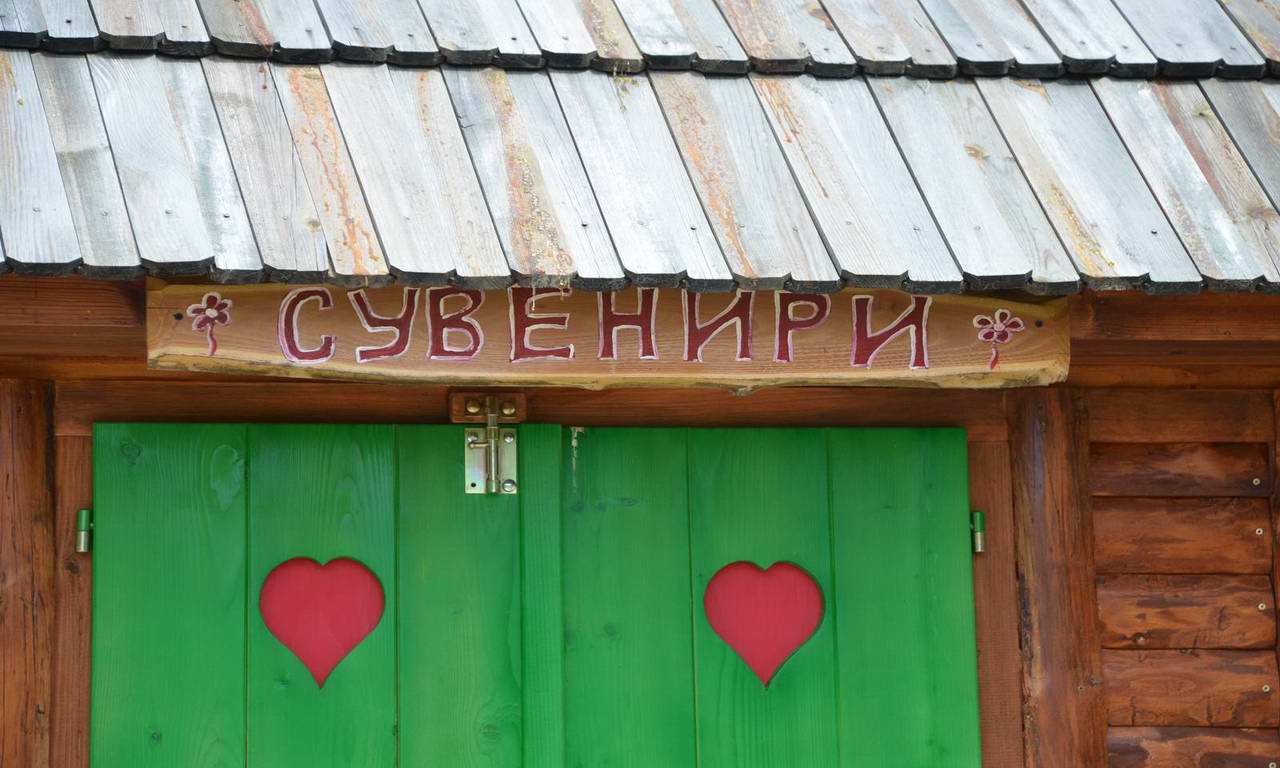 СУВЕНИРИ